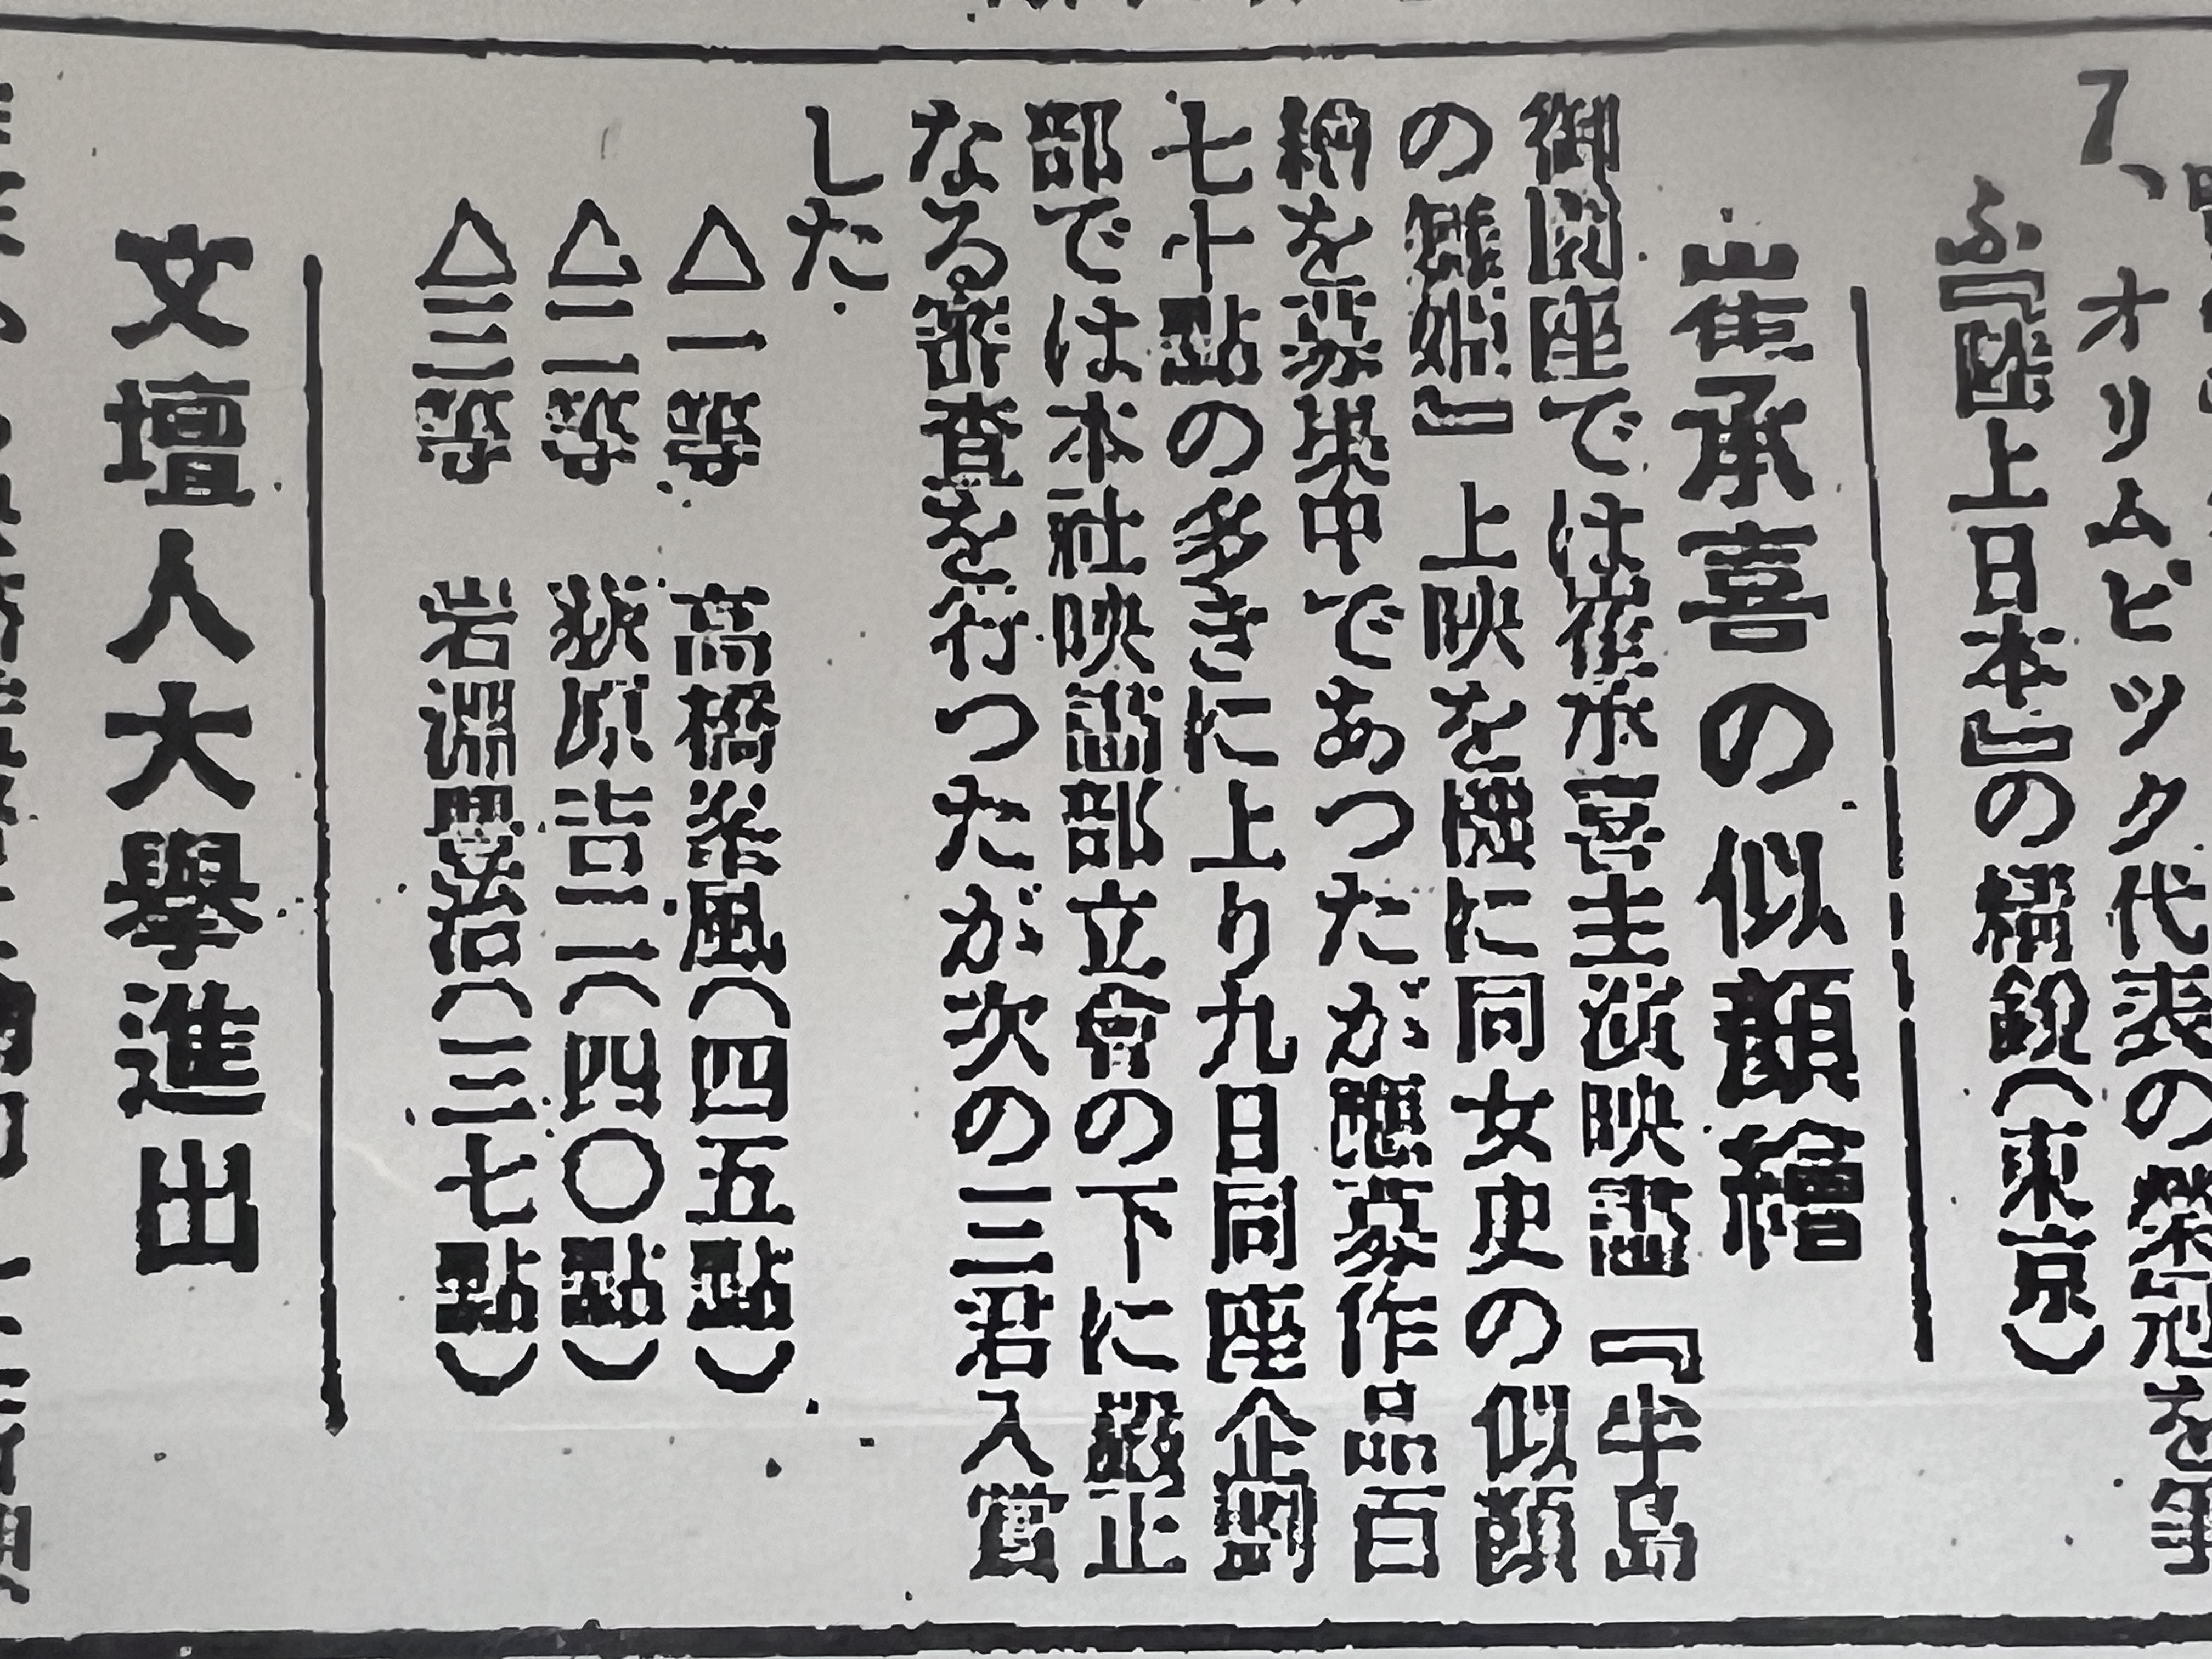 7、オリムピツク代表の榮冠を
ふ『陸上日本』の橘鋭(東京)
崔承喜の似顔繪
御園座では崔承喜主演映畵『半島
の舞姫』上映を機に同女史の似顔
繪を募集中であつたが應募作品百
七十點の多きに上り九日同座企劃
部では本社映畵部立會の下に嚴正
なる審査を行つたが次の三君入賞
した
△一等 高橋 風(四五點)
△二等 荻原吉二(四〇點)
△三等 岩淵 治(三七點)
文壇人大擧進出